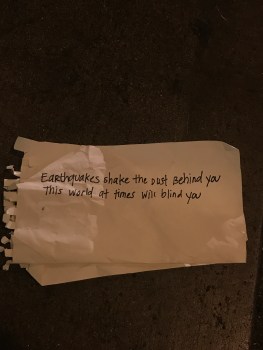 Earthquakes shake the Dust Behind you
This world at times will blind you